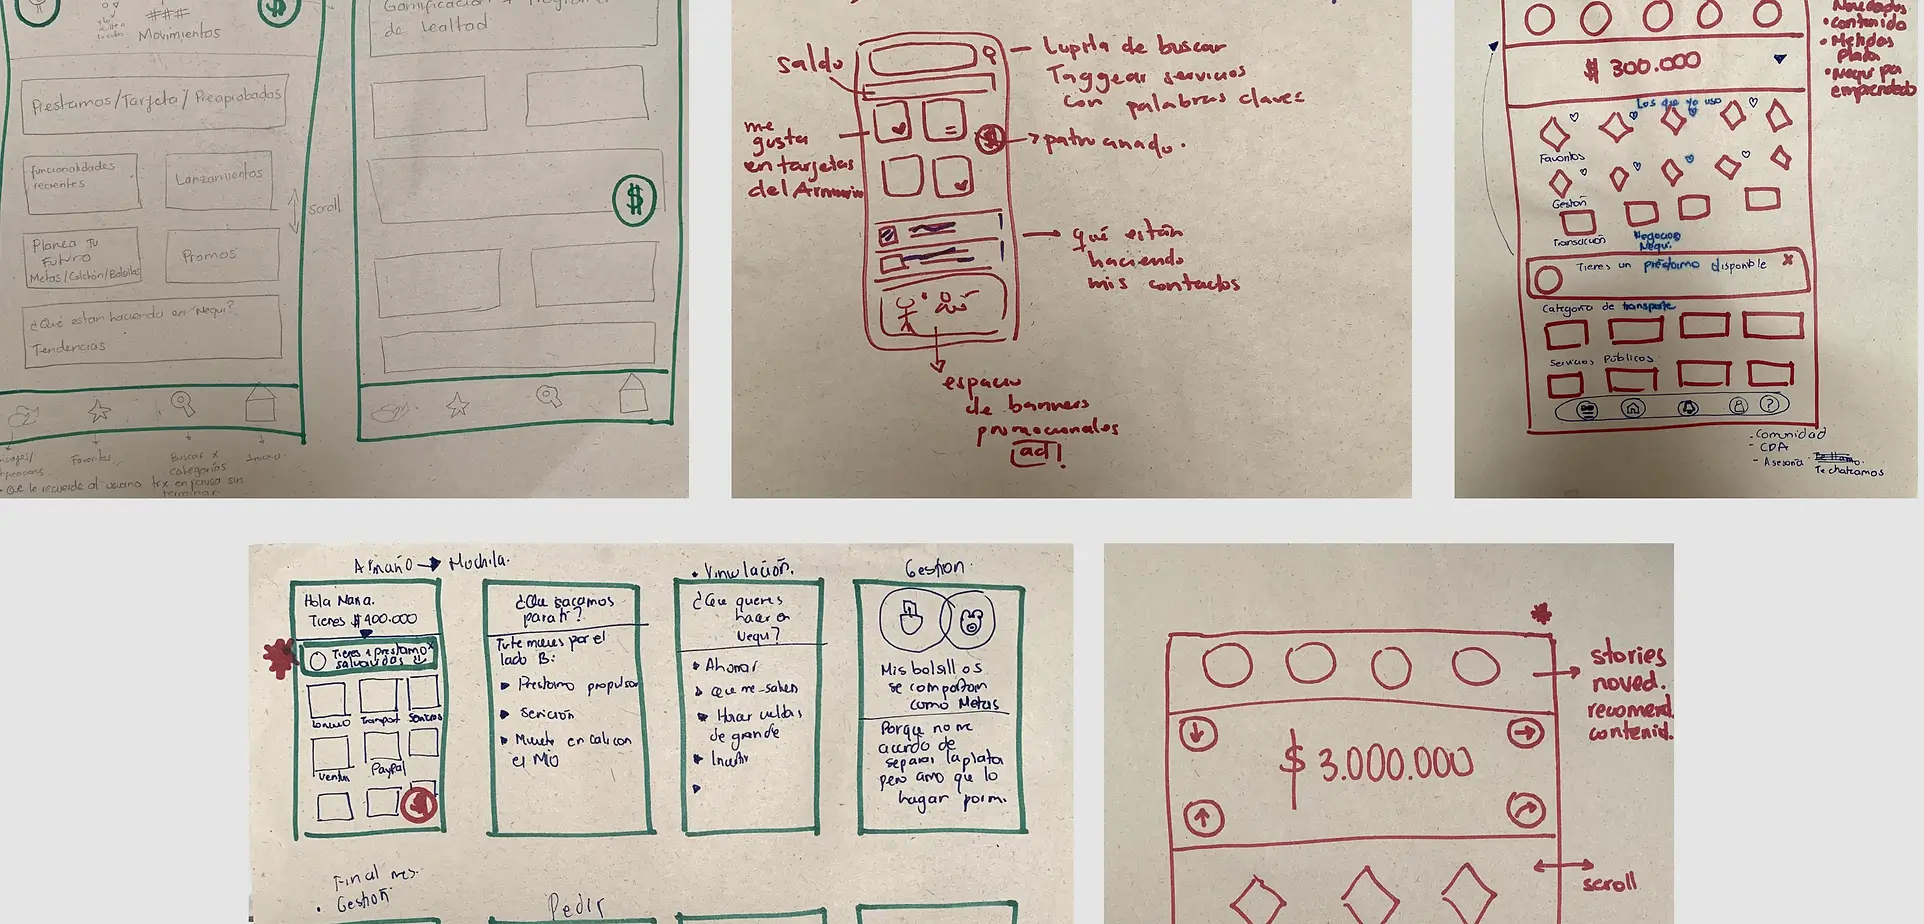 ###
Movimientos
$
Prestamos/Tarjeta/Preaprobados
funcionalidades
recientes
Lanzamientos
Scroll
Planea Tu
Futuro
Metas/Colchón/Bolsillos
Promos
¿Qué estan haciendo en Nequi?
Tendencias
Favoritos
Buscar x
categorías
Inicio
que le recuerde al usuario trx en pausa sin
terminar
Gamificación + Programa
de lealtad
$
saldo
Lupita de buscar
Taggear servicios
con palabras claves
me
gusta
en tarjetas
del Armario
$
patrocinado.
qué están
haciendo
mis contactos
espacio
de banners
promocionales
ad!
Novedades
• contenido
• Metidas
Plata
• Nequi per
emprendedo
$ 300.000
Los que yo uso
Favoritos
Gestión
Transacción
Negocios
Nequi
Tienes un préstamo disponible
x
Categoría de transporte
Servicios Públicos
?
- Comunidad
- CDA
- Asesoría
Te chateamos
Armario → Mochila.
Hola Nana.
Tienes $400.000
Tienes 1 prestamo
salvavidas
x
Transport
Servicios
PayPal
¿Que sacamos
para ti?
Tu te mueves por el
lado B:
Prestamo propulsor
Muevete en Cali con
el MIO
• Vinculación.
¿Que quieres
hacer en
Nequi?
Ahorrar
Hacer vueltas
de grande
Invertir
Gestion.
Mis bolsillos
se comportan
como Metas
Porque no me
acuerdo de
separar la plata
pero amo que lo
hagan por mi.
Final mes.
• Gestion
Pedir
stories
noved.
recomend.
contenid.
$ 3.000.000
scroll